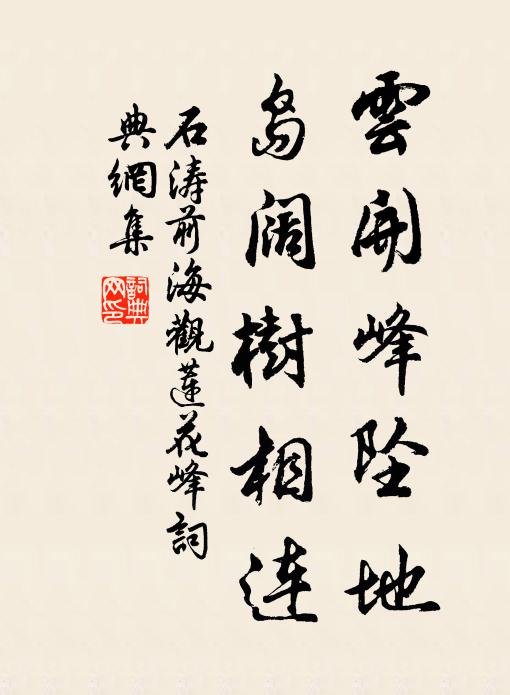 雲開峰墜地
島闊樹相連
石濤前海觀蓮花峰詞
典網集
詞典網印